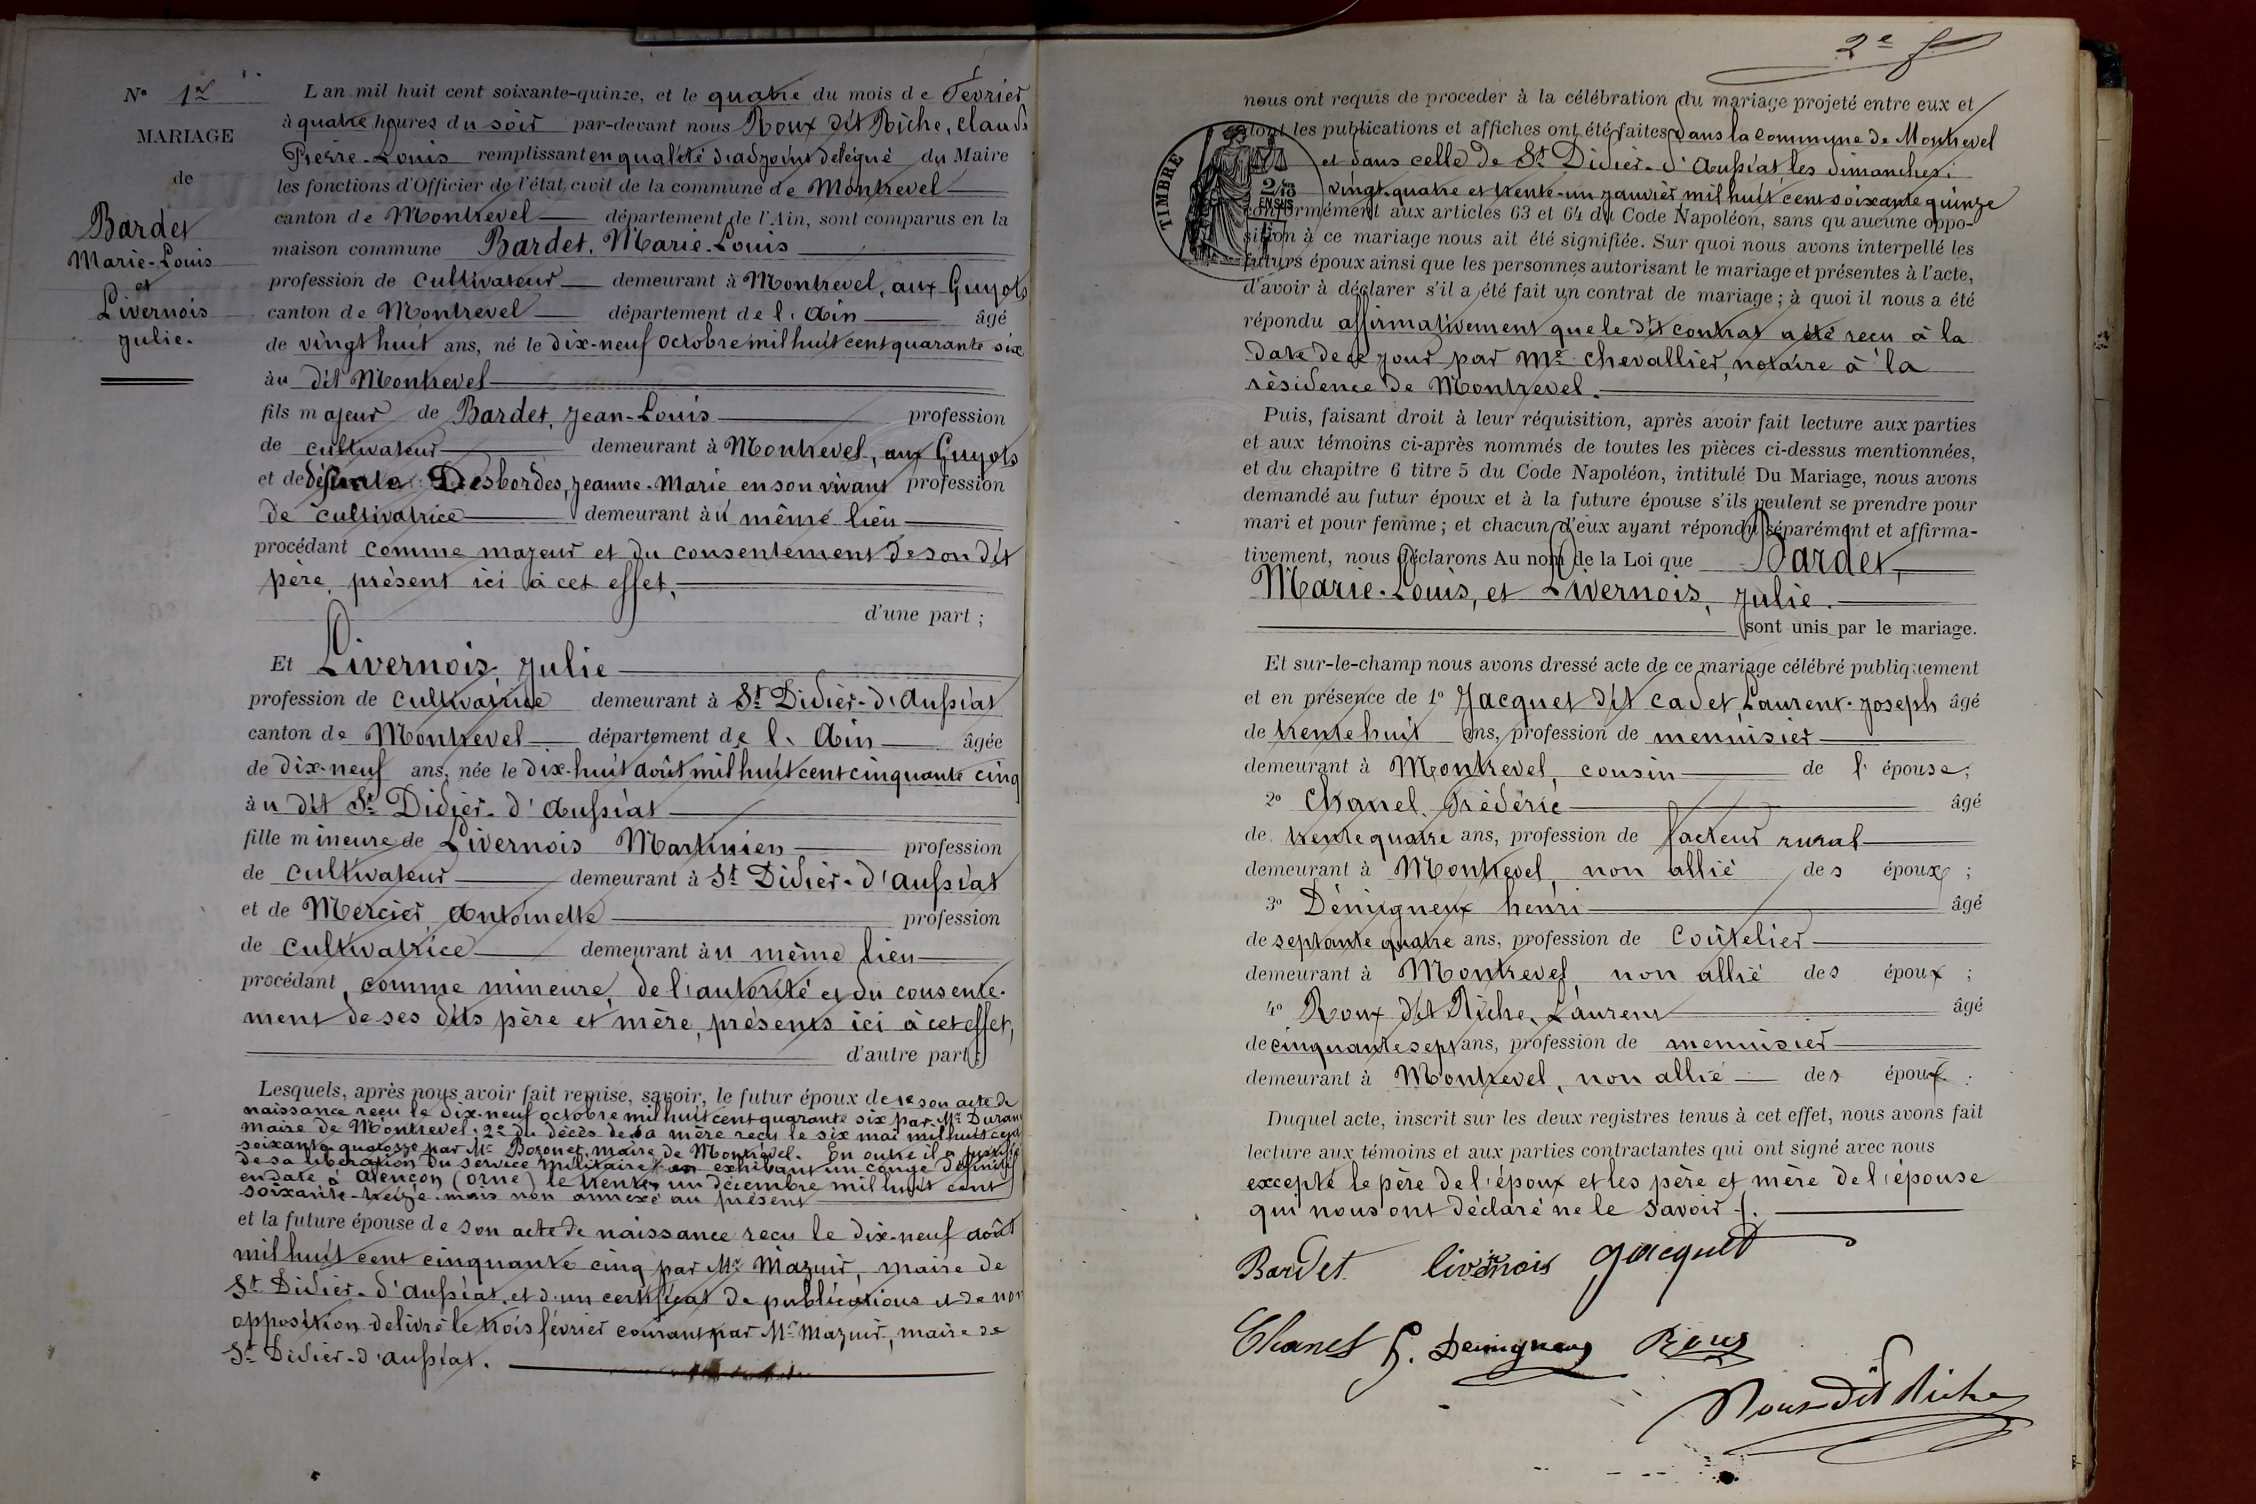 Nº 1er
MARIAGE
de
Bardet
Marie-Louis
et
Livernois
Julie.
L'an mil huit cent soixante-quinze, et le quatre du mois de Février
à quatre heures du soir par-devant nous Roux dit Riche, Claude
Pierre-Louis remplissant en qualité d'adjoint délégué du Maire
les fonctions d'Officier de l'état civil de la commune de Montrevel
canton de Montrevel département de l'Ain, sont comparus en la
maison commune Bardet, Marie-Louis
profession de cultivateur demeurant à Montrevel, aux Guyots
canton de Montrevel département de l'Ain âgé
de vingt huit ans, né le dix-neuf octobre mil huit cent quarante six
au dit Montrevel
fils majeur de Bardet, Jean-Louis profession
de cultivateur demeurant à Montrevel, aux Guyots
et de défunte Desbordes, Jeanne-Marie en son vivant profession
de cultivatrice demeurant au même lieu
procédant comme majeur et du consentement de son dit
père, présent ici à cet effet,
d'une part ;
Et Livernois, Julie
profession de cultivatrice demeurant à St Didier-d'Aussiat
canton de Montrevel département de l'Ain âgée
de dix-neuf ans, née le dix-huit août mil huit cent cinquante cinq
au dit St Didier-d'Aussiat
fille mineure de Livernois Martinien profession
de cultivateur demeurant à St Didier-d'Aussiat
et de Mercier, Antoinette profession
de cultivatrice demeurant au même lieu
procédant comme mineure, de l'autorité et du consente-
ment de ses dits père et mère, présents ici à cet effet,
d'autre part ;
Lesquels, après nous avoir fait remise, savoir, le futur époux de 1º son acte de
naissance reçu le dix-neuf octobre mil huit cent quarante six par Mr Duran
maire de Montrevel ; 2º du décès de sa mère reçu le six mai mil huit cent
soixante quatorze par Mr Bozonet, maire de Montrevel. En outre il a justifié
de sa libération du service militaire en exhibant un congé définitif
en date à Alençon (Orne) le trente un décembre mil huit cent
soixante-treize. mais non annexé au présent
et la future épouse de son acte de naissance reçu le dix-neuf août
mil huit cent cinquante cinq par Mr Mazuir, maire de
St Didier-d'Aussiat, et d'un certificat de publications et de non
opposition délivré le trois février courant par Mr Mazuir, maire de
St Didier-d'Aussiat.
2e f
nous ont requis de proceder à la célébration du mariage projeté entre eux et
dont les publications et affiches ont été faites dans la commune de Montrevel
et dans celle de St Didier-d'Aussiat, les dimanches
vingt-quatre et trente-un janvier mil huit cent soixante quinze
TIMBRE
2/10
EN SUS
conformément aux articles 63 et 64 du Code Napoléon, sans qu'aucune oppo-
sition à ce mariage nous ait été signifiée. Sur quoi nous avons interpellé les
futurs époux ainsi que les personnes autorisant le mariage et présentes à l'acte,
d'avoir à déclarer s'il a été fait un contrat de mariage ; à quoi il nous a été
répondu affirmativement que le dit contrat a été reçu à la
date de ce jour par Me Chevallier, notaire à la
résidence de Montrevel.
Puis, faisant droit à leur réquisition, après avoir fait lecture aux parties
et aux témoins ci-après nommés de toutes les pièces ci-dessus mentionnées,
et du chapitre 6 titre 5 du Code Napoléon, intitulé Du Mariage, nous avons
demandé au futur époux et à la future épouse s'ils veulent se prendre pour
mari et pour femme ; et chacun d'eux ayant répondu séparément et affirma-
tivement, nous déclarons Au nom de la Loi que Bardet,
Marie-Louis, et Livernois, Julie.
sont unis par le mariage.
Et sur-le-champ nous avons dressé acte de ce mariage célébré publiquement
et en présence de 1º Jacquet dit Cadet, Laurent-Joseph âgé
de trente huit ans, profession de menuisier
demeurant à Montrevel, cousin de l'épouse ;
2º Chanel, Frédéric âgé
de trente quatre ans, profession de facteur rural
demeurant à Montrevel, non allié des époux ;
3º Démigneux henri âgé
de septante quatre ans, profession de coûtelier
demeurant à Montrevel, non allié des époux ;
4º Roux dit Riche, Laurent âgé
de cinquante sept ans, profession de menuisier
demeurant à Montrevel, non allié des époux.
Duquel acte, inscrit sur les deux registres tenus à cet effet, nous avons fait
lecture aux témoins et aux parties contractantes qui ont signé avec nous
excepté le père de l'époux et les père et mère de l'épouse
qui nous ont déclaré ne le savoir f.
Bardet livernois Jacquet
Chanel h. Demigneux Roux
Roux dit Riche